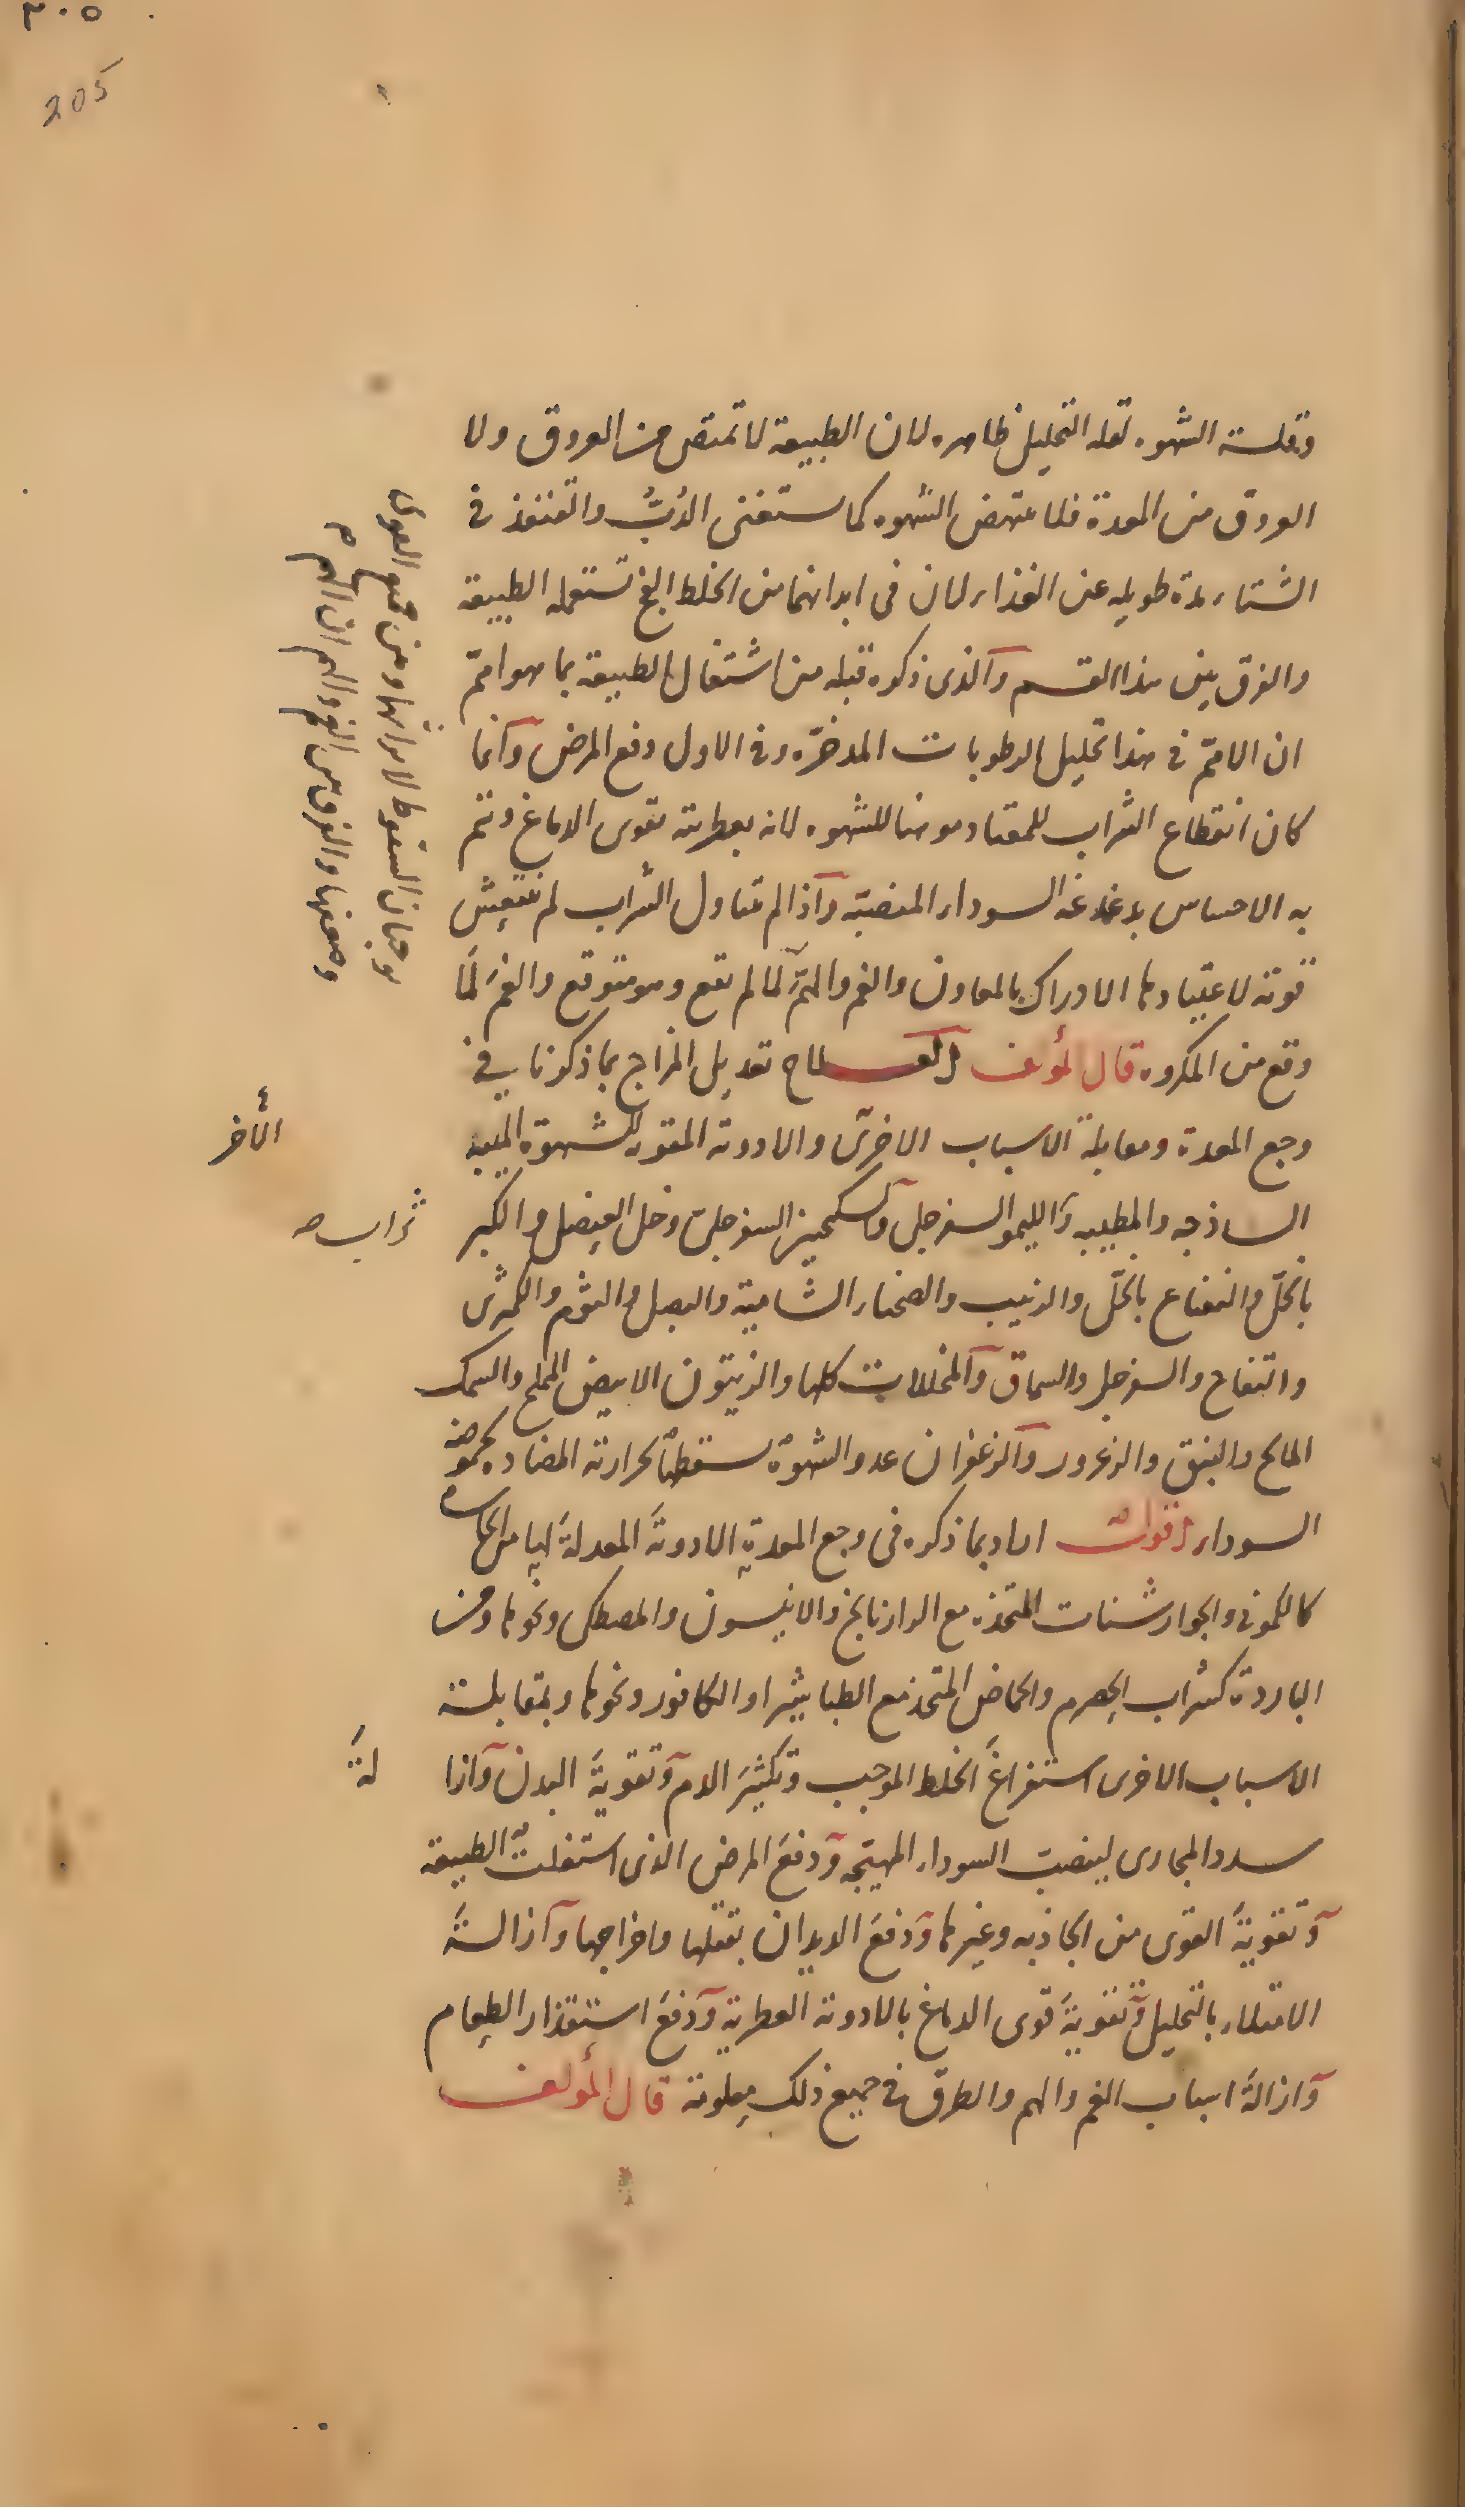 ٢٠٥
205
وقلة الشهوه لقله التحليل ظاهره لان الطبيعة لا تمتص من العروق ولا
العروق من المعدة فلا تنتهض الشهوه كما يستغنى الدُبُّ والقنفذ في
الشتاء مدة طويله عن الغذاء لان فى ابدانهما من الخلط الفج تستعمله الطبيعة
والفرق بين هذا القسم والذى ذكره قبله من اشتغال الطبيعة بما هو اهمّ
ان الاهمّ في هذا تحليل الرطوبات المدخرّه وفى الاول دفع المرض وانما
كان انقطاع الشراب للمعتاد موهنا للشهوه لانه بعطريته يقوى الدماغ ويتم
به الاحساس بدغدغه السوداء المنصبّه واذا لم يتناول الشراب لم تنتعش
قوته لاعتيادها الادراك بالمعاون والغم والهمّ لما لم يقع وهو متوقع والغمّ لمّا
وقع من المكروه قال المؤلف العلاج تعديل المزاج بما ذكرنا في
وجع المعدة ومقابلة الاسباب الاخرى والادوية المقويه للشهوة الميبه
الساذجه والمطيبه والليمو السفرجلى والسكنجبين السفرجلىّ وخل العنصل والكبر
بالخلّ والنعناع بالخلّ والزبيب والصحناء الشامية والبصل والثوم والكمثرى
والتفاح والسفرجل والسماق والمخللات كلها والزيتون الابيض المملح والسمك
المالح والنبق والزعرور والزعفران عدو الشهوة يسقطها لحرارته المضاده لحموضة
السوداء اقول اراد بما ذكره فى وجع المعدة الادوية المعدلة لها من الحارة
كالكمونى والجوارشنات المتخذه مع الرازيانج والانيسون والمصطكى ونحوها ومن
الباردة كشراب الحصرم والحماض المتخذ مع الطباشير او الكافور ونحوها وبمقابلة
الاسباب الاخرى استفراغَ الخلط الموجب وتكثيرَ الدم وتقويةَ البدن وازا
سدد المجارى لينصبّ السوداء المهيّجه ودفعَ المرض الذى اشتغلت به الطبيعة
وتقويةَ القوى من الجاذبه وغيرها ودفعَ الديدان بقتلها واخراجها وازالةَ
الامتلاء بالتحليل وتقويةَ قوى الدماغ بالادوية العطرية ودفعَ استقذار الطعام
وازالةَ اسباب الغم والهم والطرق في جميع ذلك معلومة قال المؤلف
يوجبان السقوط لامراضها ومن جميع القوى
وضعفها والفرق بين الغم والهم ان الهم
الأخر
شراب صه
لةَ